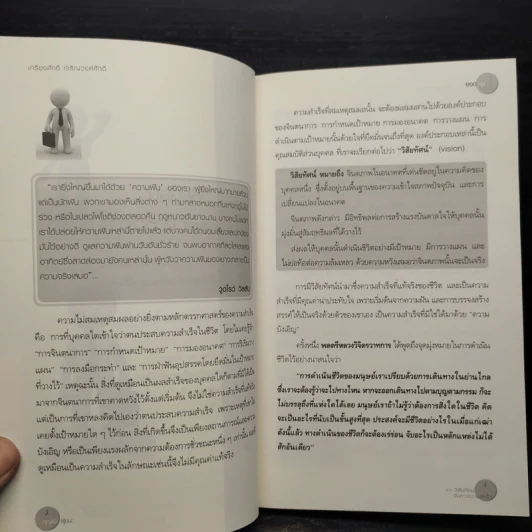 เกรียงศักดิ์ เจริญวงศ์ศักดิ์
"เรายิ่งใหญ่ขึ้นมาได้ด้วย "ความฝัน" ของเรา ผู้ยิ่งใหญ่มากมายล้วน
แต่เป็นนักฝัน พวกเขามองเห็นสิ่งต่าง ๆ ท่ามกลาง
ร่วง หรือในเปลวไฟโชติช่วงตลอดคืน ฤดูหนาวอันยาวนาน บางคนในพวก
เราได้ปล่อยให้ความฝันเหล่านี้ตายไปแล้ว แต่บางคนได้ถนอมเลี้ยงและปกป้อง
มันไว้อย่างดี ดูแลความฝันผ่านวันอันชั่วร้าย จนพบ
อาทิตย์ซึ่งสาดส่องมายังคนเหล่านั้น ผู้หวังว่าความฝันของเขาจะกลายเป็น
ความจริงเสมอ"
วูดโรว์ วิลสัน
ความไม่สมเหตุสมผลอย่างยิ่งตามหลักตรรกศาสตร์ของความสำเร็จ
คือ การที่บุคคลใดเข้าใจว่าตนประสบความสำเร็จในชีวิต โดยไม่เคยรู้จัก
"การจินตนาการ" "การกำหนดเป้าหมาย" "การมองอนาคต" "การริเริ่มวาง
แผน" "การลงมือกระทำ" และ "การฝ่าฟันอุปสรรคโดยยึดมั่นในเป้าหมาย
ที่วางไว้" เหตุฉะนั้น สิ่งที่ดูเหมือนเป็นผลสำเร็จของบุคคลใดก็ตามที่มิได้เป็น
มาจากจินตนาการที่เขาคาดหวังไว้ตั้งแต่เริ่มต้น จึงไม่ใช่ความสำเร็จที่แท้จริง
แต่เป็นการที่เขาหลงคิดไปเองว่าตนประสบความสำเร็จ เพราะเหตุที่เขาไม่
เคยตั้งเป้าหมายใด ๆ ไว้ก่อน สิ่งที่เกิดขึ้นจึงเป็นเพียงสถานการณ์และความ
บังเอิญ หรือเป็นเพียงแรงผลักจากความต้องการชั่วขณะหนึ่ง ๆ เท่านั้น ผลที่
ดูเหมือนเป็นความสำเร็จในลักษณะเช่นนี้จึงไม่มีคุณค่าแท้จริง
ความสำเร็จที่สมเหตุสมผลนั้น จะต้องผสมผสานไปด้วยองค์ประกอบ
ของจินตนาการ การกำหนดเป้าหมาย การมองอนาคต การวางแผน การ
ดำเนินตามเป้าหมายนั้นด้วยใจที่ยึดมั่นจนถึงที่สุด องค์ประกอบเหล่านี้เป็น
คุณสมบัติส่วนบุคคล ที่เราจะเรียกต่อไปว่า "วิสัยทัศน์" (vision)
วิสัยทัศน์ หมายถึง จินตภาพในอนาคตที่เด่นชัดอยู่ในความคิดของ
บุคคลหนึ่ง ซึ่งตั้งอยู่บนพื้นฐานของความเข้าใจสภาพปัจจุบัน และการ
เปลี่ยนแปลงในอนาคต
จินตภาพดังกล่าว มีอิทธิพลต่อการสร้างแรงบันดาลใจให้บุคคลนั้น
มุ่งมั่นสู่สัมฤทธิผลที่ได้วางไว้
ส่งผลให้บุคคลนั้นดำเนินชีวิตอย่างมีเป้าหมาย มีการวางแผน และ
ไม่ย่อท้อต่อความล้มเหลว ด้วยความหวังเสมอว่าจินตภาพนั้นจะเป็นจริง
การมีวิสัยทัศน์นำมาซึ่งความสำเร็จที่แท้จริงของชีวิต และเป็นความ
สำเร็จที่มีคุณค่าน่าประทับใจ เพราะเริ่มต้นจากความฝัน และการบรรจงสร้าง
สรรค์ให้เป็นจริงด้วยตัวของเขาเอง เป็นความสำเร็จที่มิใช่ได้มาด้วย "ความ
บังเอิญ"
ครั้งหนึ่ง พลตรีหลวงวิจิตรวาทการ ได้พูดถึงจุดมุ่งหมายในการดำเนิน
ชีวิตไว้อย่างน่าสนใจว่า
"การดำเนินชีวิตของมนุษย์เราเปรียบด้วยการเดินทางในย่านไกล
ซึ่งเราจะต้องรู้ว่าจะไปทางไหน หากจะออกเดินทางไปตามบุญตามกรรม ก็จะ
ไม่บรรลุถึงที่แห่งใดได้เลย มนุษย์เราถ้าไม่รู้ว่าต้องการสิ่งใดในชีวิต คิด
จะเป็นอะไรที่นับเป็นขั้นสูงที่สุด ประสงค์จะมีชีวิตอย่างไรในเมื่อแก่เฒ่า
ดังนี้แล้ว ทางดำเนินของชีวิตก็จะต้องเร่ร่อน จับอะไรเป็นหลักแหล่งไม่ได้
สักอันเดียว"